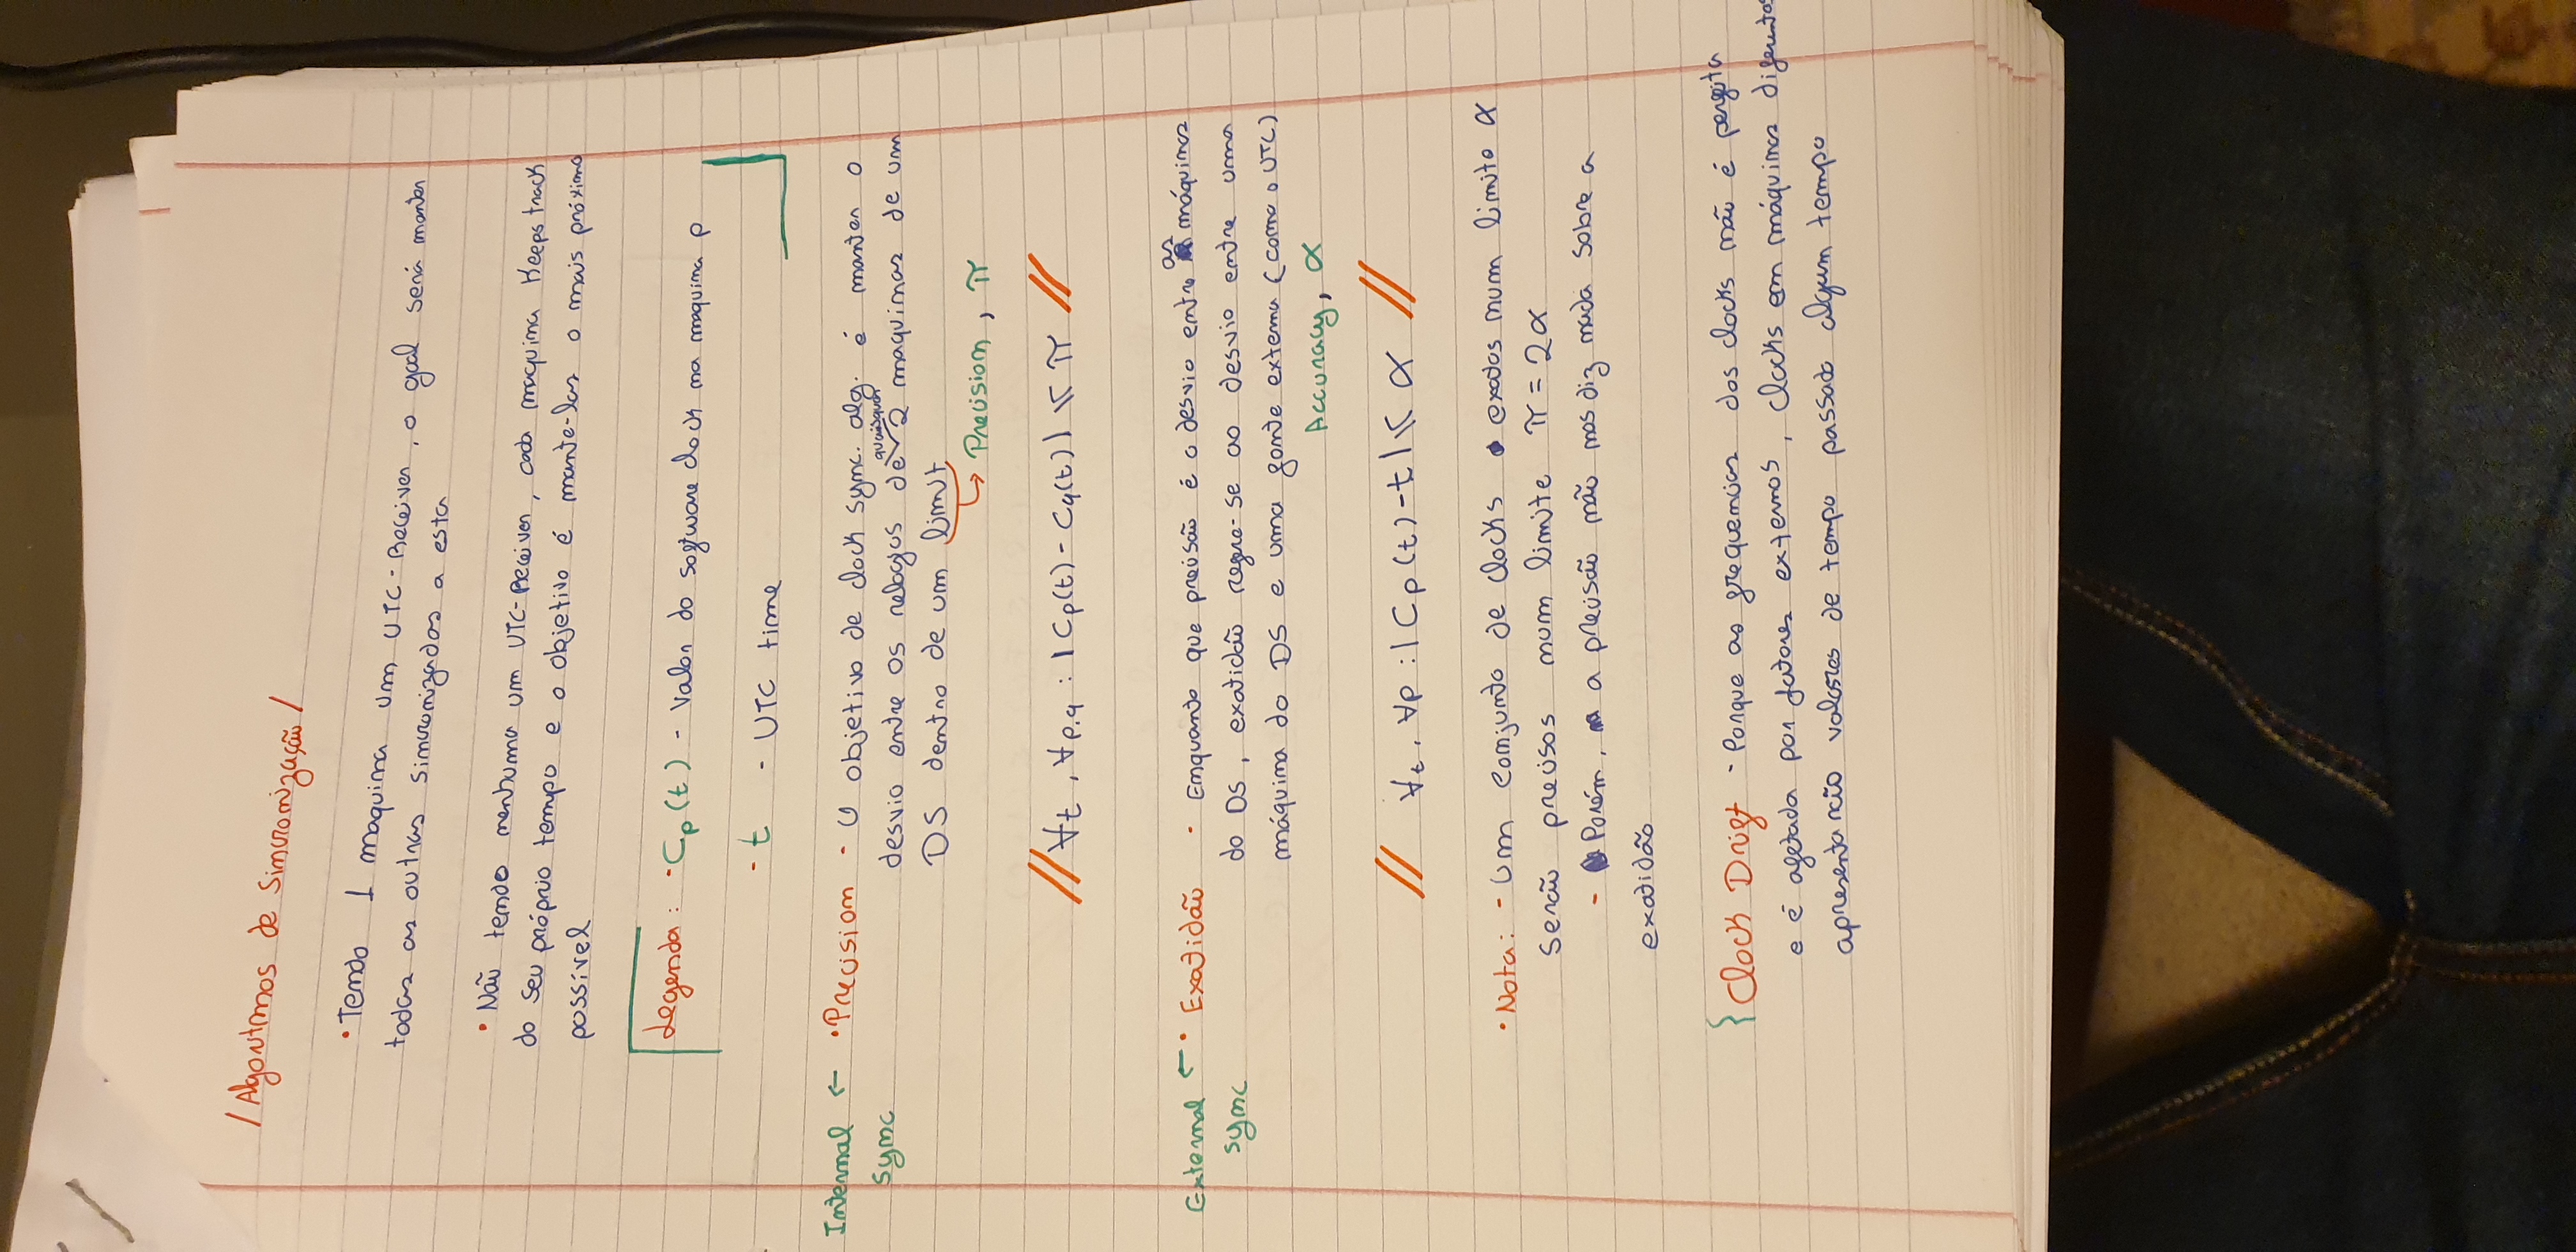 /Algoritmos de Sincronização/
• Tendo 1 maquina um UTC-Receiver, o goal será manter
todas as outras sincronizadas a esta
• Não tendo nenhuma um UTC-Receiver, cada maquina Keeps track
do seu próprio tempo e o objetivo é mante-las o mais próximo
possível
Legenda: - Cp(t) - Valor do software clock na maquina p
- t - UTC time
Internal sync ← • Precision - O objetivo de clock sync. alg. é manter o
desvio entre os relogios de quaisquer 2 maquinas de um
DS dentro de um limit
↳ Precision, π
// ∀t, ∀p,q : |Cp(t) - Cq(t)| ≤ π //
External sync ← • Exatidão - Enquanto que precisão é o desvio entre as máquinas
do DS, exatidão refere-se ao desvio entre uma
máquina do DS e uma fonte externa (como o UTC)
Accuracy, α
// ∀t, ∀p : |Cp(t) - t| ≤ α //
• Nota: - Um conjunto de clocks exatos num limite α
serão precisos num limite π = 2α
- Porém, a precisão não nos diz nada sobre a
exatidão
{ Clock Drift - Porque as frequencias dos clocks não é perfeita
e é afetada por fatores externos, clocks em máquinas diferentes
apresentarão valores de tempo passado algum tempo